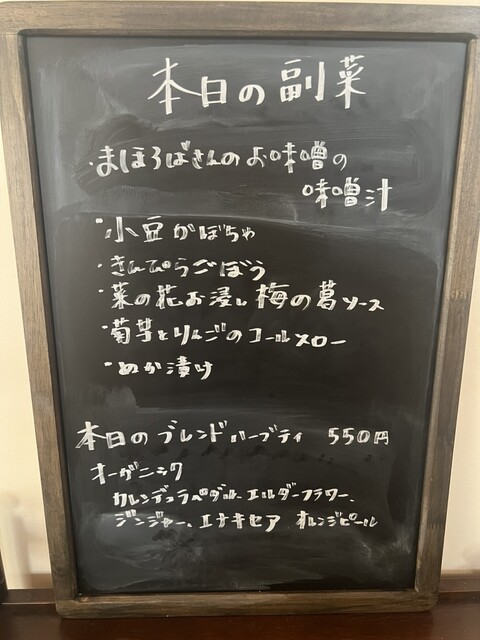 本日の副菜
・まほろばさんのお味噌の
味噌汁
・小豆かぼちゃ
・きんぴらごぼう
・菜の花お浸し梅の葛ソース
・菊芋とりんごのコールスロー
・ぬか漬け
本日のブレンドハーブティ 550円
オーガニック
カレンデュラペダル エルダーフラワー、
ジンジャー、エナキセア オレンジピール